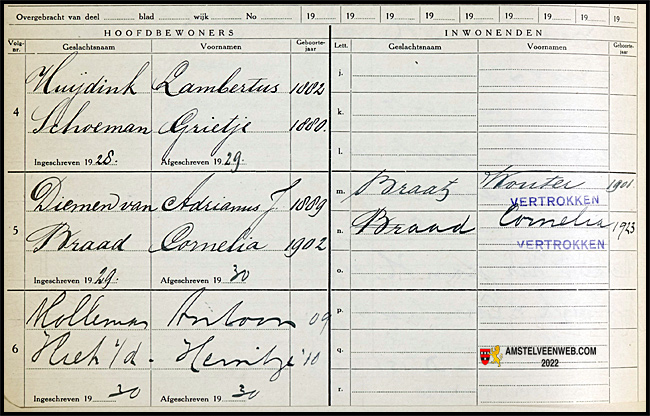 Overgebracht van deel blad wijk No 19 19 19 19 19 19 19 19
HOOFDBEWONERS INWONENDEN
Volg-nr. Geslachtsnaam Voornamen Geboorte-jaar Lett. Geslachtsnaam Voornamen Geboorte-jaar
4
Huijdink Lambertus 1882 j.
k.
Schoeman Grietje 1880. l.
Ingeschreven 1928. Afgeschreven 1929.
5
Diemen van Adrianus J. 1889 m. Braatz Wouter 1901
VERTROKKEN
Braad Cornelia 1902 n. Braad Cornelia 1923
VERTROKKEN
o.
Ingeschreven 1929. Afgeschreven 1930
6
Molleman Antoon 09 p.
v/d - '10 q.
r.
Ingeschreven 1930 Afgeschreven 1930
AMSTELVEENWEB.COM
2022